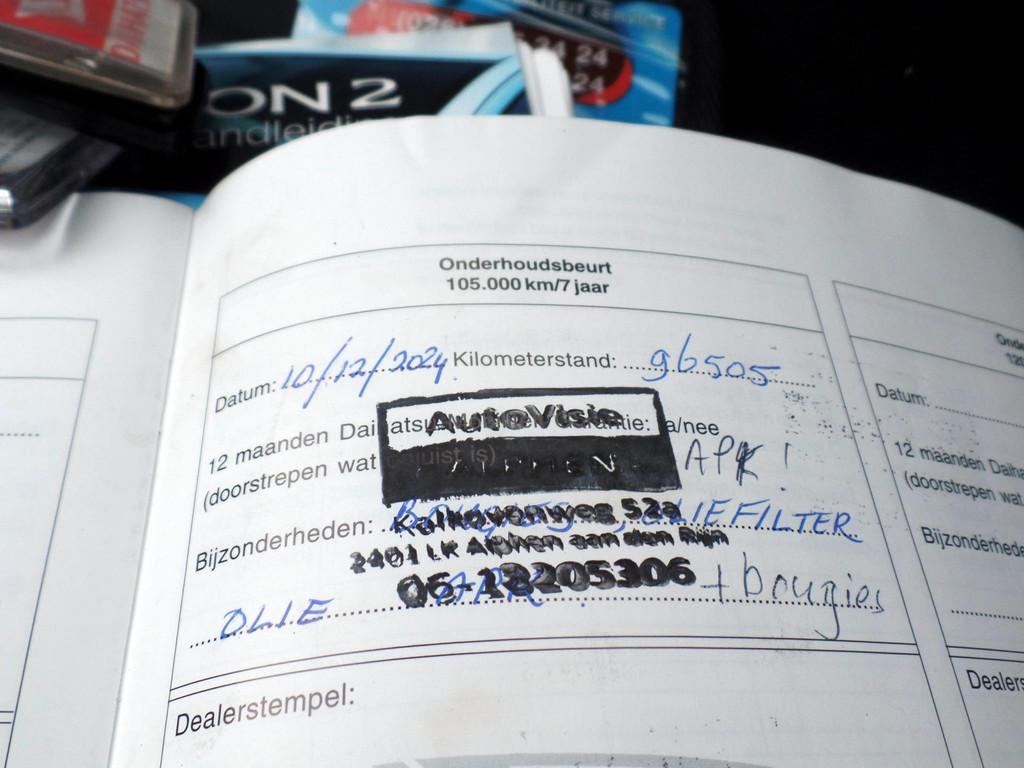 ON 2
andleidin
24 24
24
Onderhoudsbeurt
105.000 km/7 jaar
Datum: 10/12/2024 Kilometerstand: 96505
AutoVisie
ALPHEN
12 maanden Daihatsu garantie: ja/nee
(doorstrepen wat onjuist is)
APK !
Bijzonderheden: BOUGIES, OLIEFILTER
Kalkovenweg 52a
2401 LK Alphen aan den Rijn
06-18205306
OLIE APK + bougies
Dealerstempel:
Datum:
12 maanden Daiha
(doorstrepen wat
Bijzonderhede
Dealers